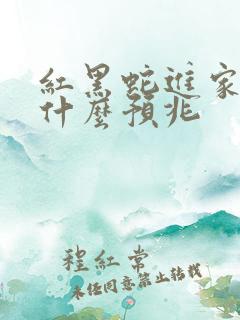 紅黑蛇進家
什麼預兆
程紅常
未经同意禁止转载